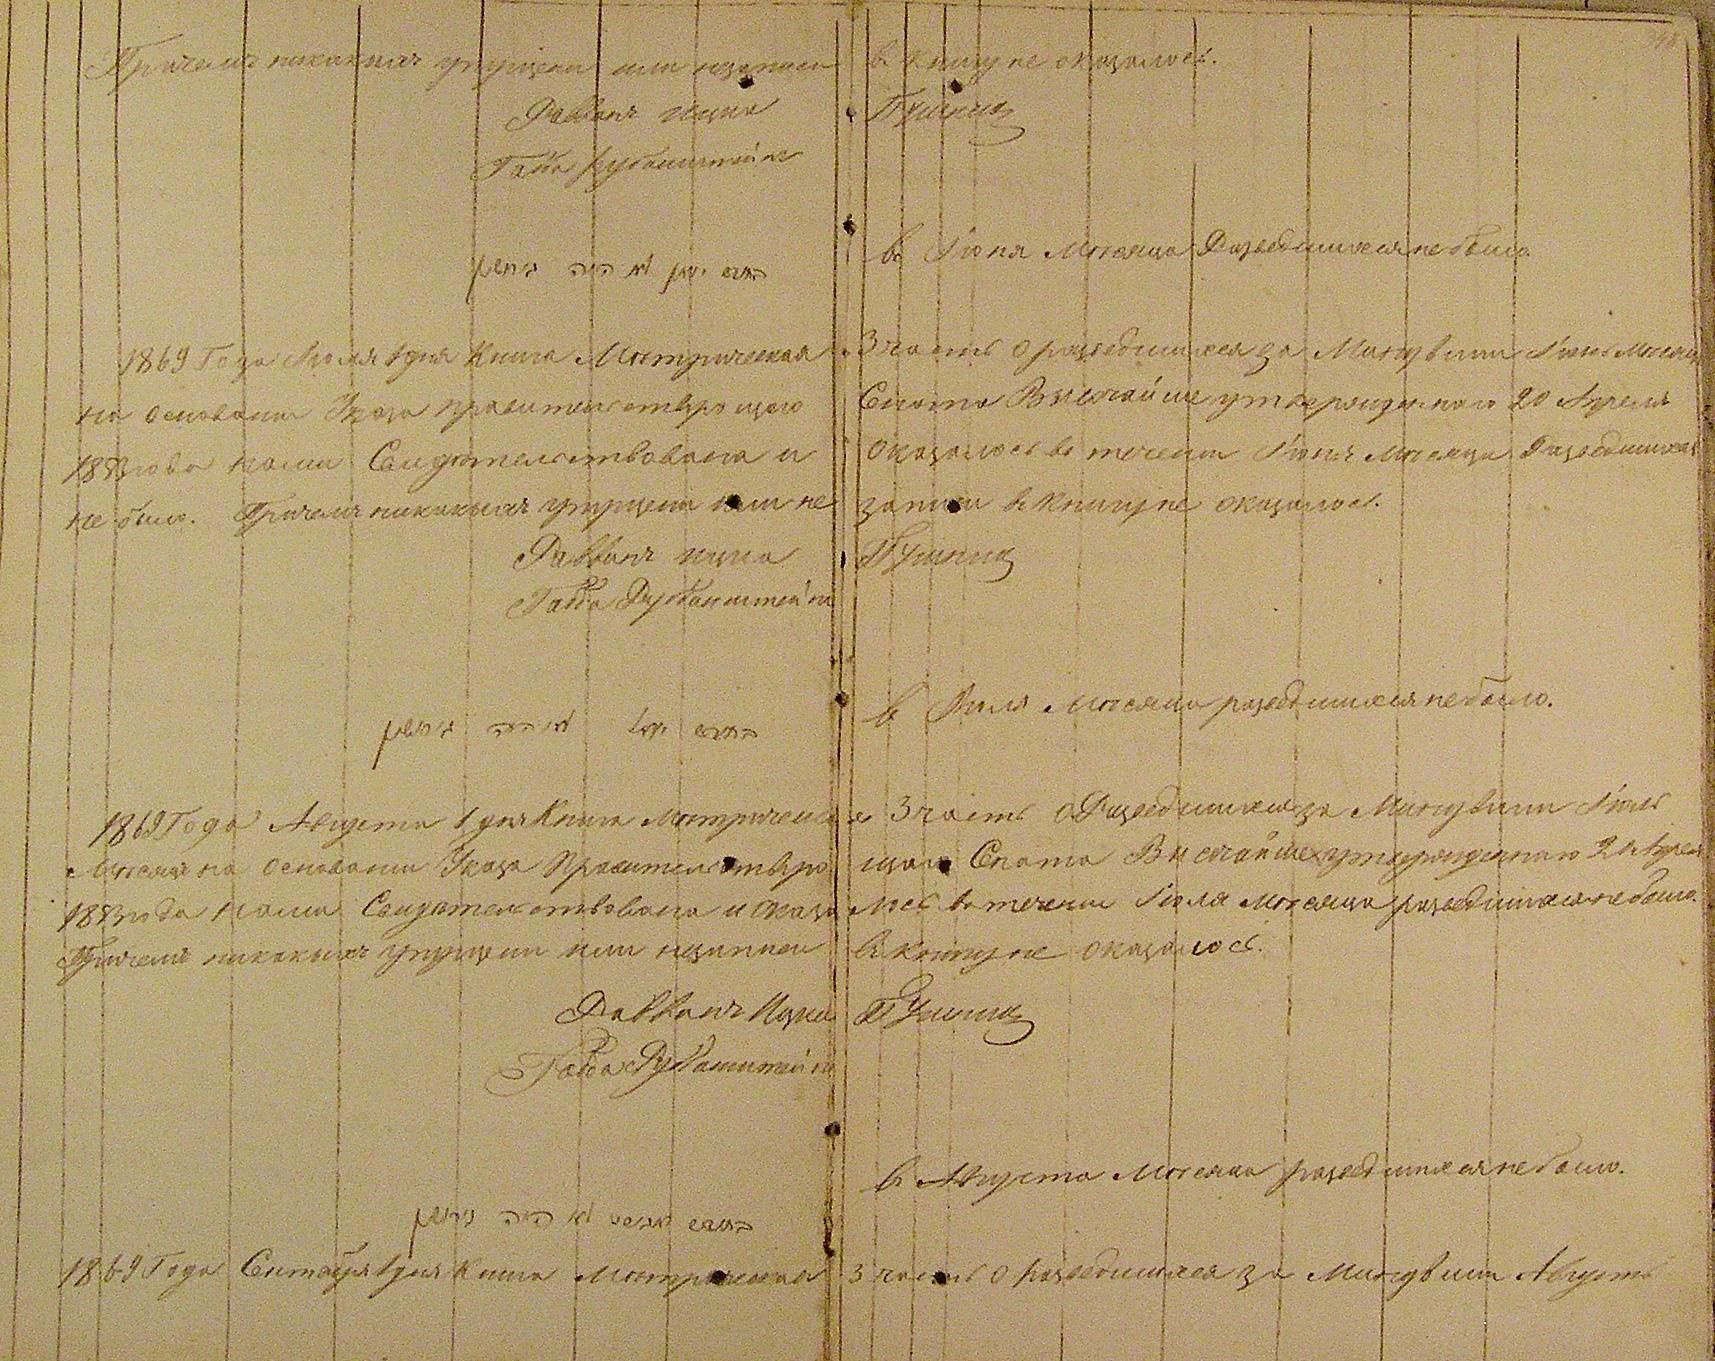 Причемъ никакихъ упущени или незаписи в книгу не оказалось.
Раввинъ Ицка
Габа Рубанштейнъ
в Июня Месяца Разведшихся не было.
בחודש יוני לא היה גירושין
1869 Года Июля 1 дня Книга Метрическая 3 часть о разведшихся за Минувши Июнь Месяцъ
на основани Указа Правительствующаго Сената Высочайше утвержденнаго 20 Апреля
1883 года нами Свидетельствована и оказалось в течени Июня месяца Разведшихся
не было. Причемъ никакихъ упущени или не записи в книгу не оказалось.
Раввинъ Ицка
Габа Рубанштейнъ
в Июля Месяца разведшихся не было.
בחודש יולי לא היה גירושין
1869 Года Августа 1 дня Книга Метрическая 3 часть о Разведшихся за Минувши Июль
Месяцъ на основани Указа Правительствующаго Сената Высочайше утвержденнаго 20 Апреля
1883 года нами Свидетельствована и оказалось в течени Июля месяца разведшихся не было.
Причемъ никакихъ упущени или незаписи в книгу не оказалось.
Раввинъ Ицка
Габа Рубанштейнъ
в Августа Месяца разведшихся не было.
בחודש אבגוסט לא היה גירושין
1869 Года Сентабря 1 дня Книга Метрическая 3 часть о разведшихся за Минувши Августъ